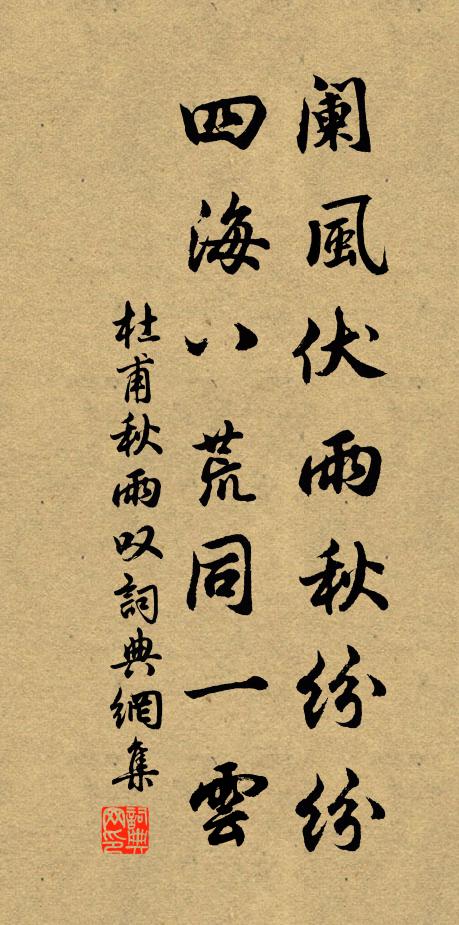 阑風伏雨秋紛紛
四海八荒同一雲
杜甫秋雨叹詞典網集
詞典网印